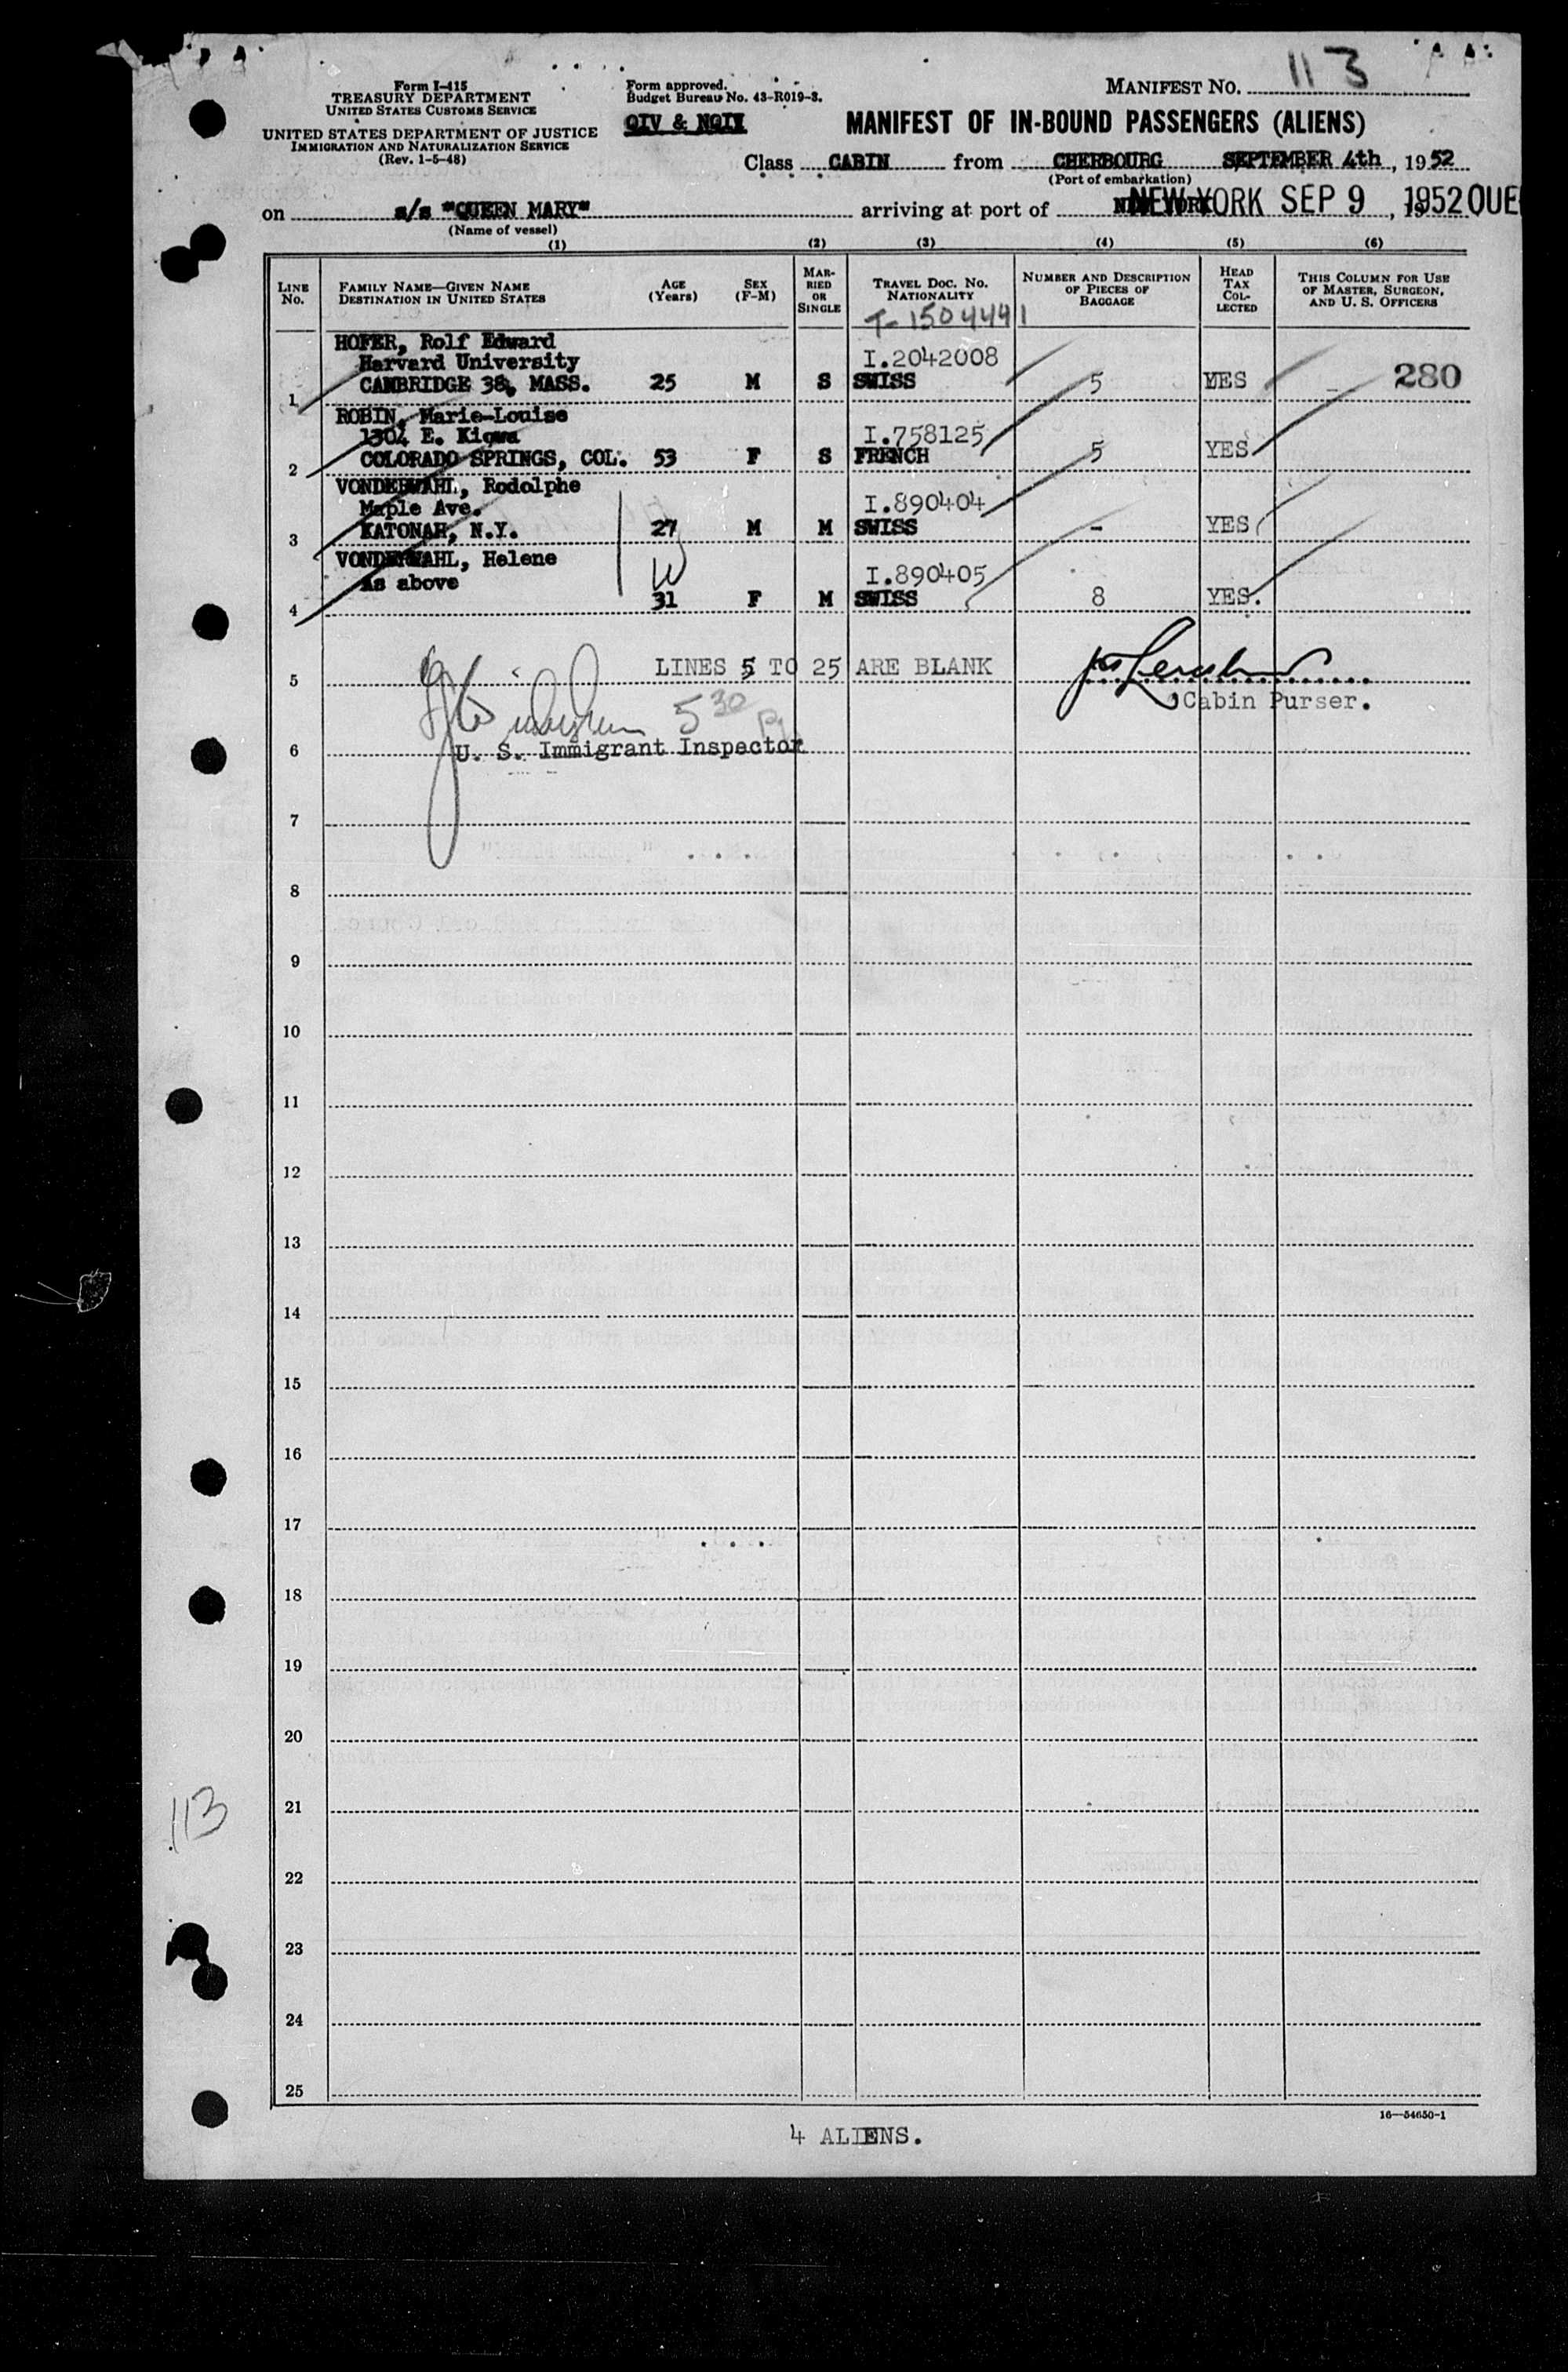 MANIFEST NO. 113
Form I-415
TREASURY DEPARTMENT
UNITED STATES CUSTOMS SERVICE
UNITED STATES DEPARTMENT OF JUSTICE
IMMIGRATION AND NATURALIZATION SERVICE
(Rev. 1-5-48)
Form approved.
Budget Bureau No. 43-R019-3.
QIV & NQIV
MANIFEST OF IN-BOUND PASSENGERS (ALIENS)
Class CABIN from CHERBOURG SEPTEMBER 4th, 1952
(Port of embarkation)
on s/s "QUEEN MARY" arriving at port of NEW YORK SEP 9, 1952 QUE
(Name of vessel)
(1) (2) (3) (4) (5) (6)
LINE No. FAMILY NAME—GIVEN NAME DESTINATION IN UNITED STATES AGE (Years) SEX (F-M) MARRIED OR SINGLE TRAVEL DOC. NO. NATIONALITY NUMBER AND DESCRIPTION OF PIECES OF BAGGAGE HEAD TAX COLLECTED THIS COLUMN FOR USE OF MASTER, SURGEON, AND U. S. OFFICERS
T-1504441
HOFER, Rolf Edward
Harvard University I.2042008
1 CAMBRIDGE 38, MASS. 25 M S SWISS 5 YES 280
ROBIN, Marie-Louise
1304 E. Kiowa I.758125
2 COLORADO SPRINGS, COL. 53 F S FRENCH 5 YES
VONDERWAHL, Rodolphe
Maple Ave. I.890404
3 KATONAH, N.Y. 27 M M SWISS - YES
VONDERWAHL, Helene
As above I.890405
4 31 F M SWISS 8 YES.
5 LINES 5 TO 25 ARE BLANK
Cabin Purser.
530
6 U. S. Immigrant Inspector
7
8
9
10
11
12
13
14
15
16
17
18
19
20
21
113
22
23
24
25
16—54650-1
4 ALIENS.